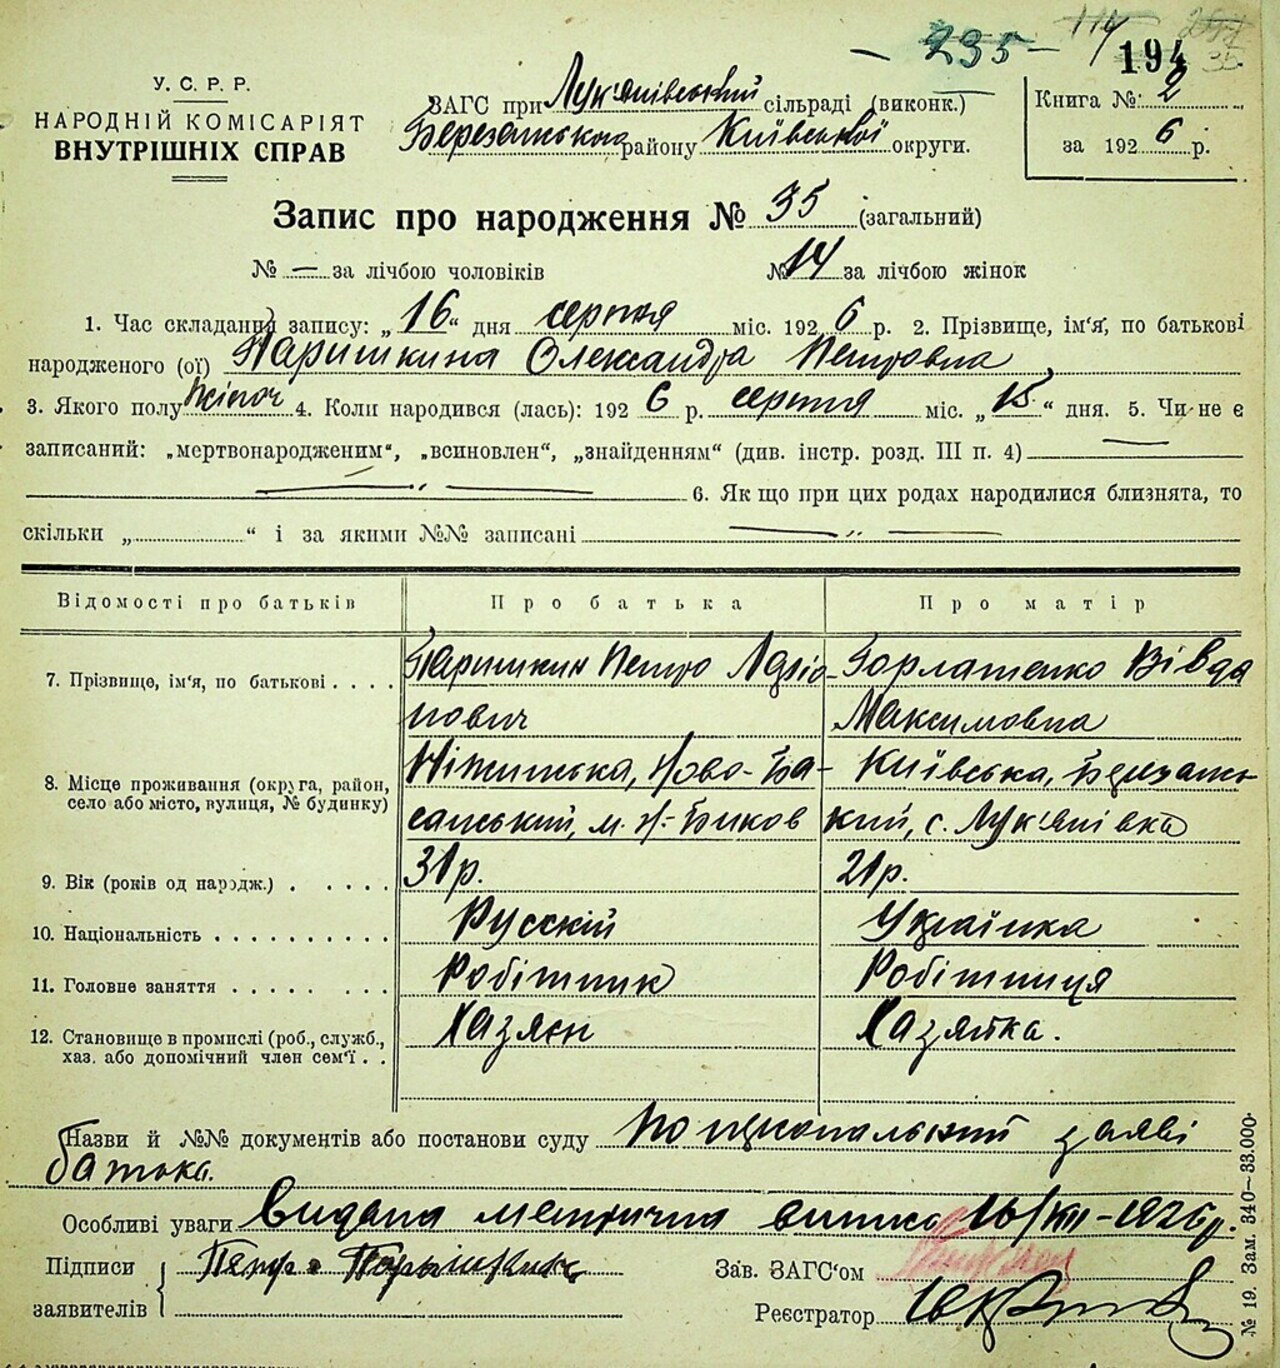 - 235 -
194
У. С. Р. Р.
НАРОДНІЙ КОМІСАРІЯТ
ВНУТРІШНІХ СПРАВ
ЗАГС при Лук'янівський сільраді (виконк.)
Березанського району Київської округи.
Книга № 2
за 1926 р.
Запис про народження № 35 (загальний)
№ — за лічбою чоловіків № 14 за лічбою жінок
1. Час складання запису: „16“ дня серпня міс. 1926 р. 2. Прізвище, ім'я, по батькові
народженого (ої) Паришкина Олександра Петровна
3. Якого полу жіноч 4. Коли народився (лась): 1926 р. серпня міс. „15“ дня. 5. Чи не є
записаний: „мертвонародженим“, „всиновлен“, „знайденням“ (див. інстр. розд. III п. 4) —
— „ — 6. Як що при цих родах народилися близнята, то
скільки „ “ і за якими №№ записані — „ —
Відомості про батьків Про батька Про матір
7. Прізвище, ім'я, по батькові . . . . Паришкин Петро Адріо- Горлатенко Вівдя
нович Максимовна
8. Місце проживання (округа, район, Ніжинська, Ново-Ба- Київська, Березансь-
село або місто, вулиця, № будинку) санський, м. Н-Биков кий, с. Лук'янівка
9. Вік (років од народж.) . . . . . 31 р. 21 р.
10. Національність . . . . . . . . . . Русскій Українка
11. Головне заняття . . . . . . . . . Робітник Робітниця
12. Становище в промислі (роб., служб., Хазяєн Хазяйка.
хаз. або допомічний член сем'ї . .
Назви й №№ документів або постанови суду По персональний заяві
батька.
Особливі уваги Видана метрична випис 16/VIII-1926 р.
Підписи Петр Парышкин
заявителів
Зав. ЗАГС'ом
Реєстратор
№ 19. Зам. 340—33.000.